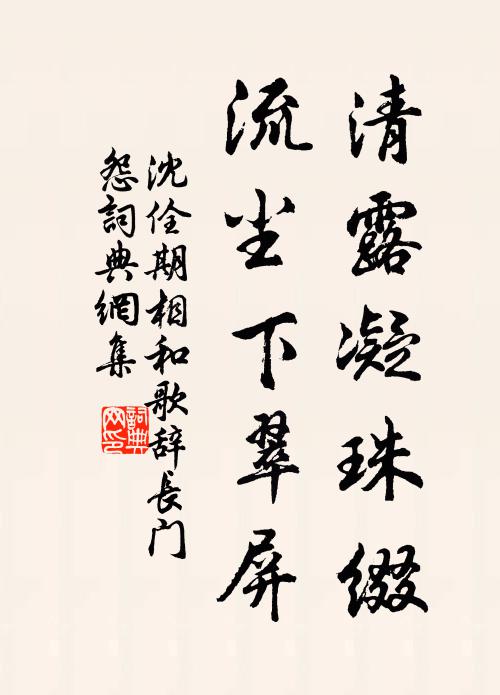 清露凝珠缀
流尘下翠屏
沈佺期相和歌辞長门
怨詞典網集
詞典网印